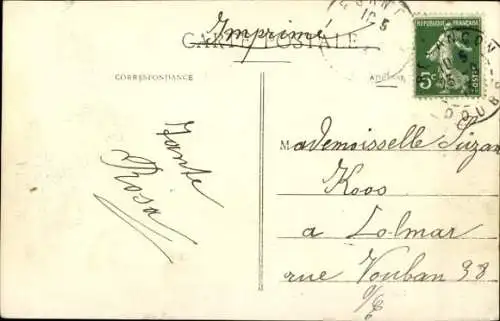 Imprimé
CARTE POSTALE
CORRESPONDANCE
ADRESSE
REPUBLIQUE FRANÇAISE
5c
POSTES
Tante
Rosa
Mademoiselle Suzan
Koos
a Lolmar
rue Vouban 98